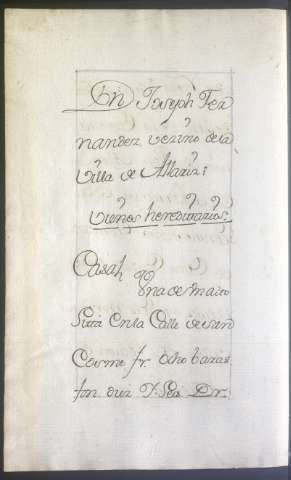 Dn Joseph Fer
nandez vezino de la
Villa de Allariz;
vienes hereditarios;
Casah Una de
Sitta En la Calle de san
Cosme fr. ocho baras
fon. diez